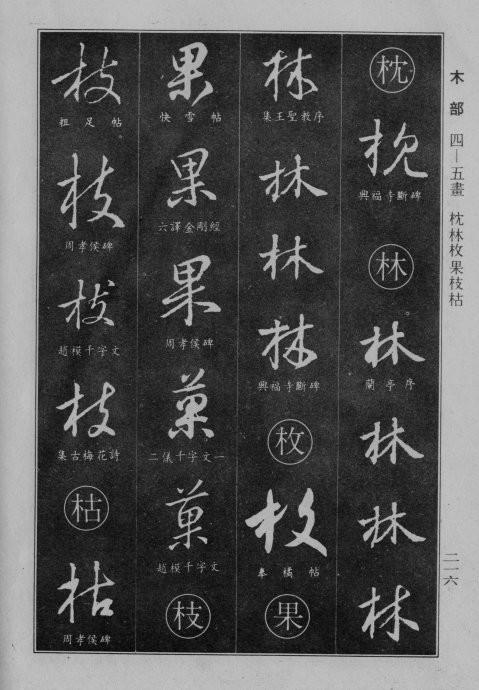 木部 四—五畫 枕林枚果枝枯
二一六
枕
枕
興福寺斷碑
林
林
蘭亭序
林
林
林
林
集王聖教序
林
林
林
興福寺斷碑
枚
枚
奉橘帖
果
果
快雪帖
果
六譯金剛經
果
周孝侯碑
菓
二儀千字文一
菓
趙模千字文
枝
枝
粗足帖
枝
周孝侯碑
枝
趙模千字文
枝
集古梅花詩
枯
枯
周孝侯碑